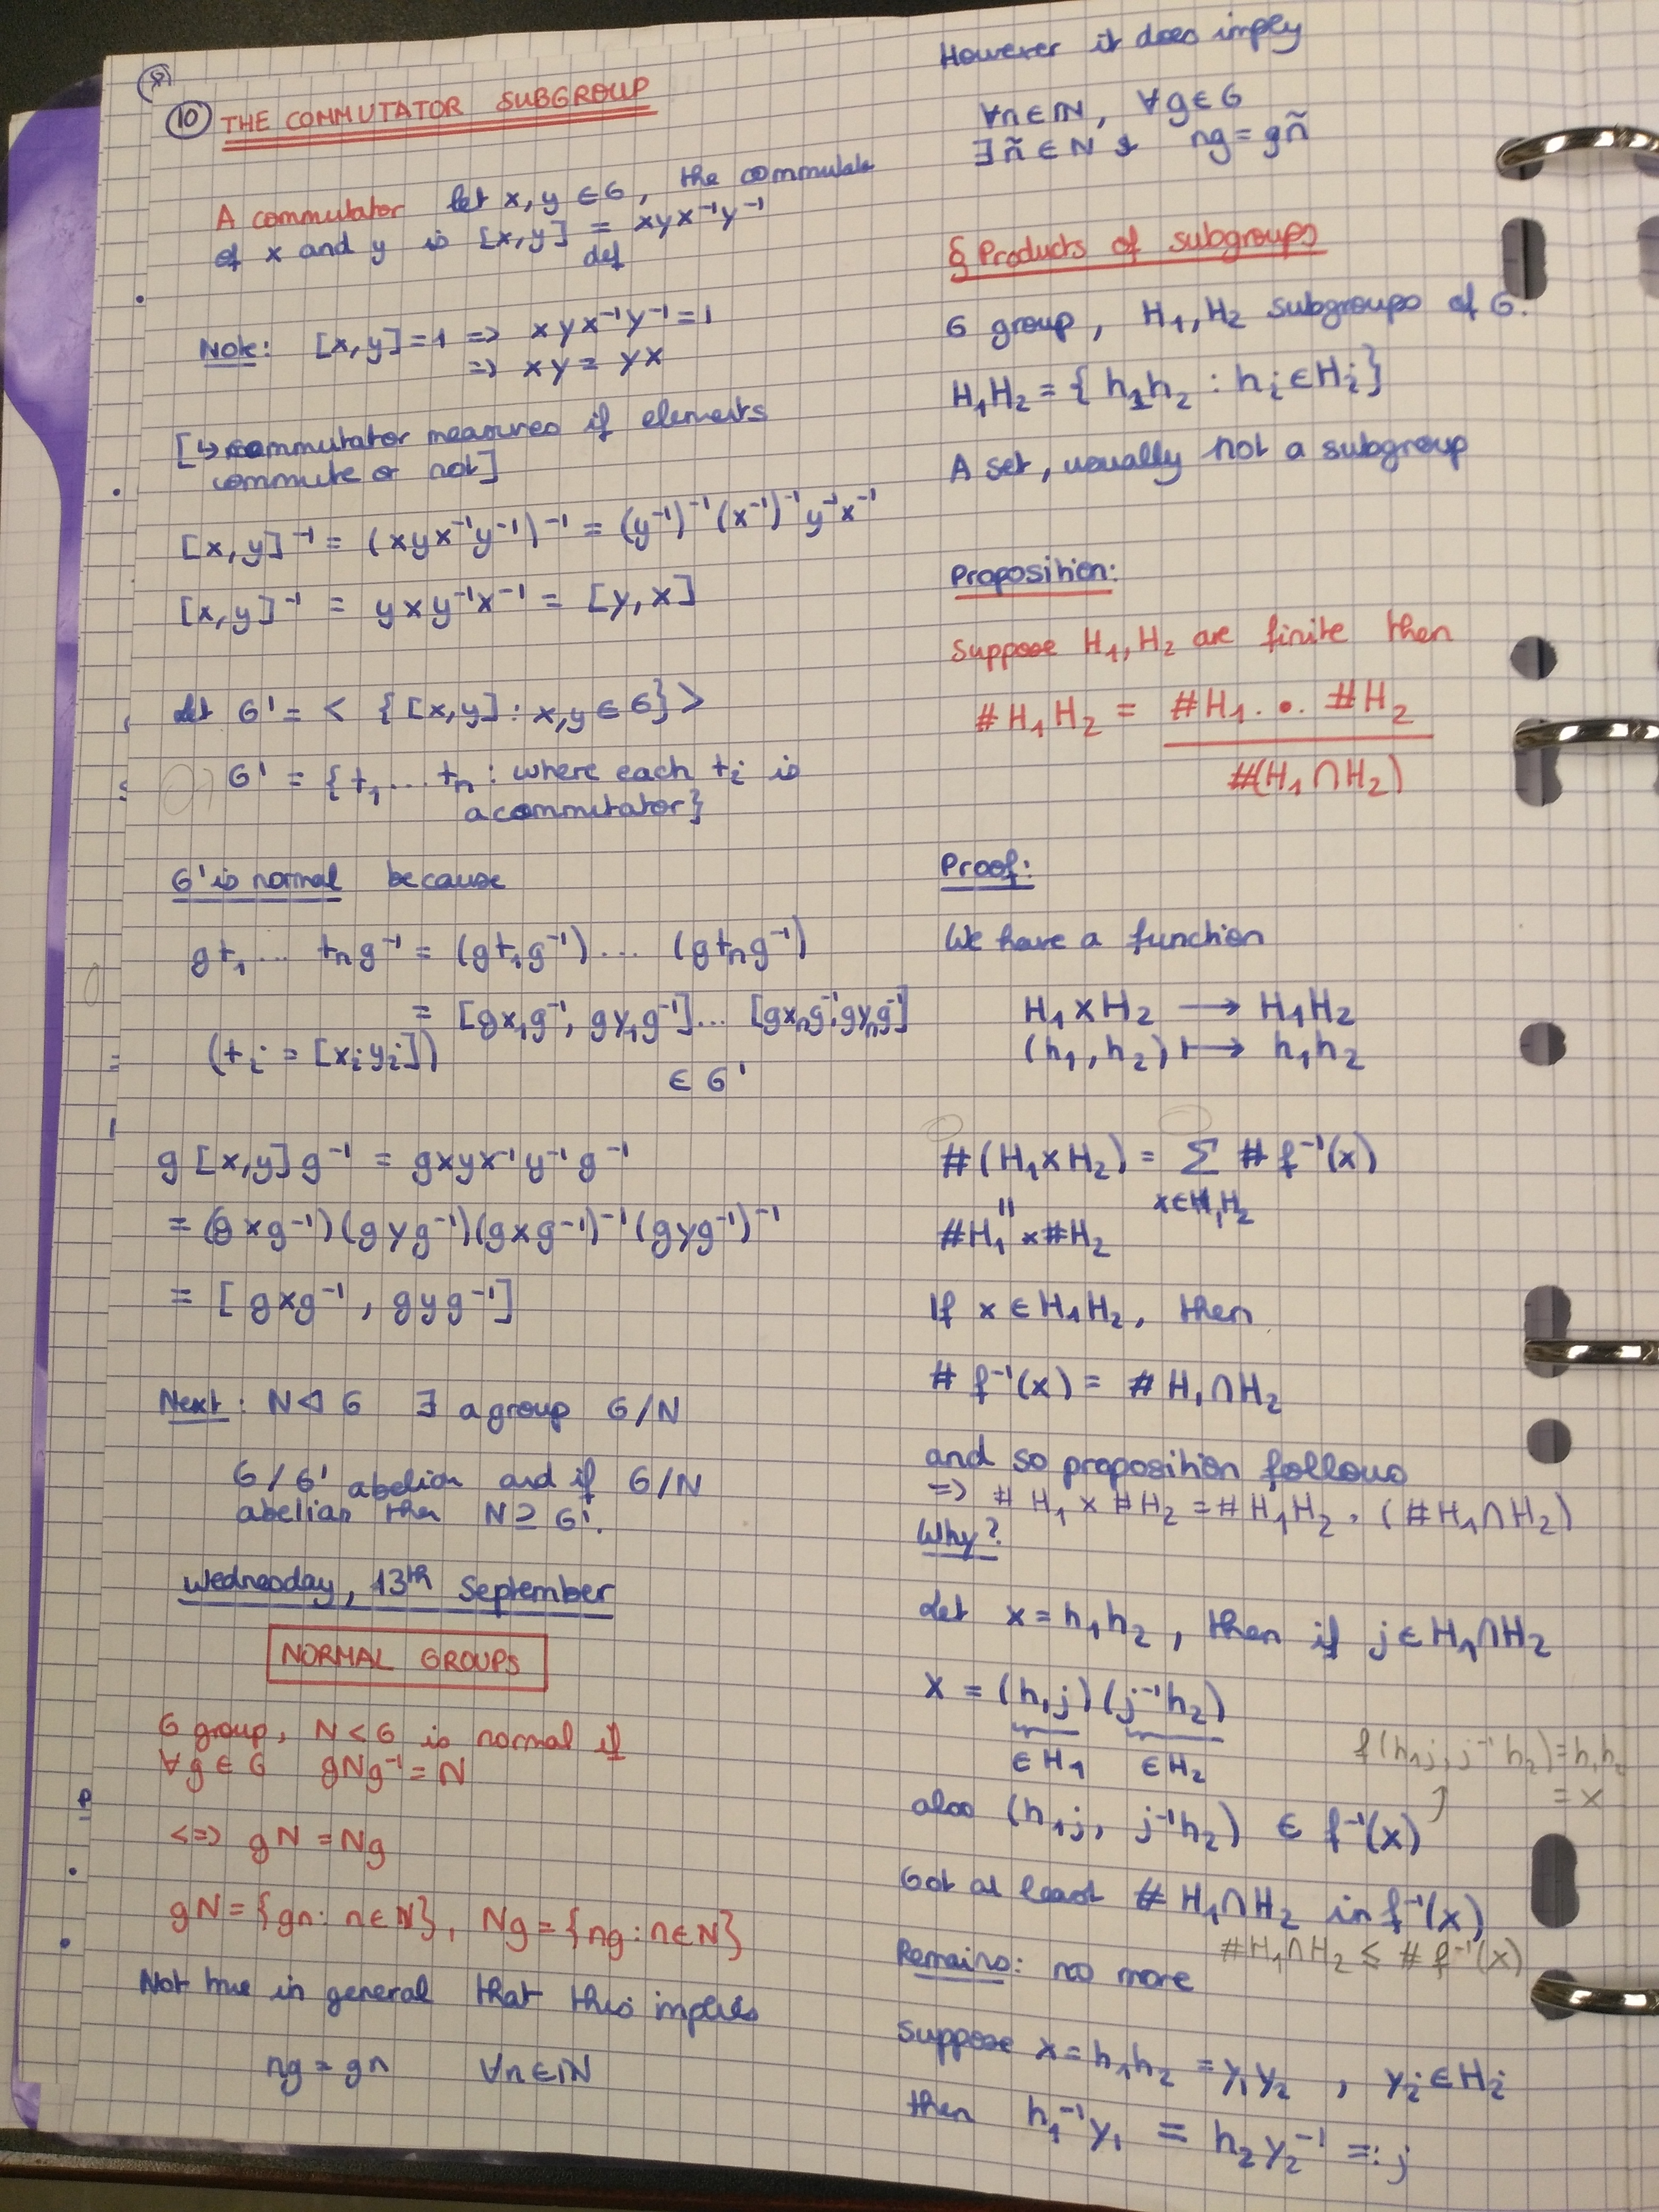 (8)
(10) THE COMMUTATOR SUBGROUP
A commutator let x, y ∈ G, the commutator
of x and y is [x,y] = xyx⁻¹y⁻¹
def
Note: [x,y]=1 => xyx⁻¹y⁻¹=1
=> xy = yx
[↳ commutator measures if elements
commute or not]
[x,y]⁻¹ = (xyx⁻¹y⁻¹)⁻¹ = (y⁻¹)⁻¹(x⁻¹)⁻¹y⁻¹x⁻¹
[x,y]⁻¹ = yxy⁻¹x⁻¹ = [y,x]
Let G' = < {[x,y] : x,y ∈ G} >
G' = {t₁...tₙ : where each tᵢ is
a commutator}
G' is normal because
gt₁... tₙg⁻¹ = (gt₁g⁻¹)... (gtₙg⁻¹)
= [gx₁g⁻¹, gy₁g⁻¹]... [gxₙg⁻¹, gyₙg⁻¹]
(tᵢ = [xᵢyᵢ])
∈ G'
g[x,y]g⁻¹ = gxyx⁻¹y⁻¹g⁻¹
= (gxg⁻¹)(gyg⁻¹)(gxg⁻¹)⁻¹(gyg⁻¹)⁻¹
= [gxg⁻¹, gyg⁻¹]
Next: N ⊲ G ∃ a group G/N
G/G' abelian and if G/N
abelian then N ⊇ G'.
Wednesday, 13th September
NORMAL GROUPS
G group, N < G is normal if
∀g ∈ G gNg⁻¹ = N
<=> gN = Ng
gN = {gn : n∈N}, Ng = {ng : n∈N}
Not true in general that this implies
ng = gn ∀n∈N
However it does imply
∀n∈N, ∀g∈G
∃ñ∈N & ng = gñ
§ Products of subgroups
G group, H₁, H₂ subgroups of G.
H₁H₂ = {h₁h₂ : hᵢ∈Hᵢ}
A set, usually not a subgroup
Proposition:
Suppose H₁, H₂ are finite then
#H₁H₂ = #H₁ . • . #H₂
#(H₁∩H₂)
Proof:
We have a function
H₁×H₂ ⟶ H₁H₂
(h₁,h₂) ⟼ h₁h₂
#(H₁×H₂) = Σ #f⁻¹(x)
x∈H₁H₂
||
#H₁ × #H₂
If x ∈ H₁H₂, then
#f⁻¹(x) = #H₁∩H₂
and so proposition follows
=> #H₁ × #H₂ = #H₁H₂ . (#H₁∩H₂)
Why?
Let x = h₁h₂, then if j∈H₁∩H₂
x = (h₁j)(j⁻¹h₂)
∈H₁ ∈H₂
f(h₁j, j⁻¹h₂) = h₁h₂
= x
also (h₁j, j⁻¹h₂) ∈ f⁻¹(x)
Got at least #H₁∩H₂ in f⁻¹(x)
#H₁∩H₂ ≤ #f⁻¹(x)
Remains: no more
Suppose x = h₁h₂ = y₁y₂, yᵢ∈Hᵢ
then h₁⁻¹y₁ = h₂y₂⁻¹ =: j